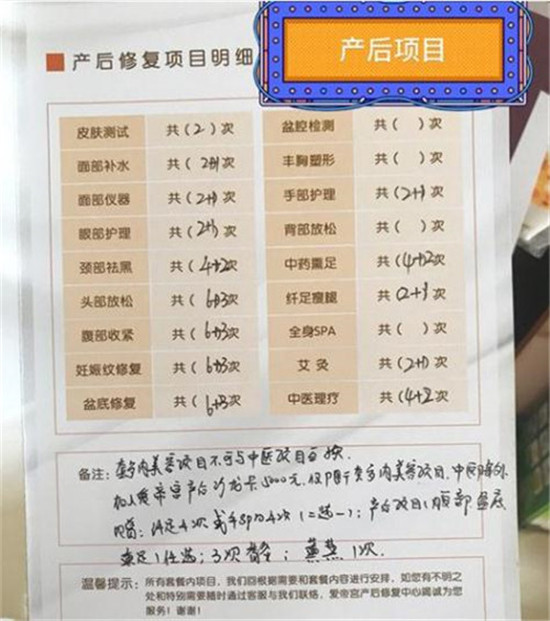 产后项目
产后修复项目明细
皮肤测试 共（2）次 盆腔检测 共（ ）次
面部补水 共（2+1）次 丰胸塑形 共（ ）次
面部仪器 共（2+1）次 手部护理 共（2+1）次
眼部护理 共（2+1）次 背部放松 共（ ）次
颈部祛黑 共（4+2次 中药熏足 共（4+2次
头部放松 共（6+3次 纤足瘦腿 共（2+1次
腹部收紧 共（6+3次 全身SPA 共（ ）次
妊娠纹修复 共（6+3次 艾灸 共（2+1）次
盆底修复 共（6+3次 中医理疗 共（4+2次
备注：套务内美容项目不可与中医项目互换
加入爱帝宫产后沙龙卡5000元，仅限于套务内美容项目，中医除外
4次 4次（二选一）；产后项目：颈部
1任选；3次 ；1次．
温馨提示：所有套餐内项目，我们回根据需要和套餐内容进行安排，如您有不明之
处和特别需要随时通过客服与我们联络，爱帝宫产后修复中心竭诚为您
服务！谢谢！